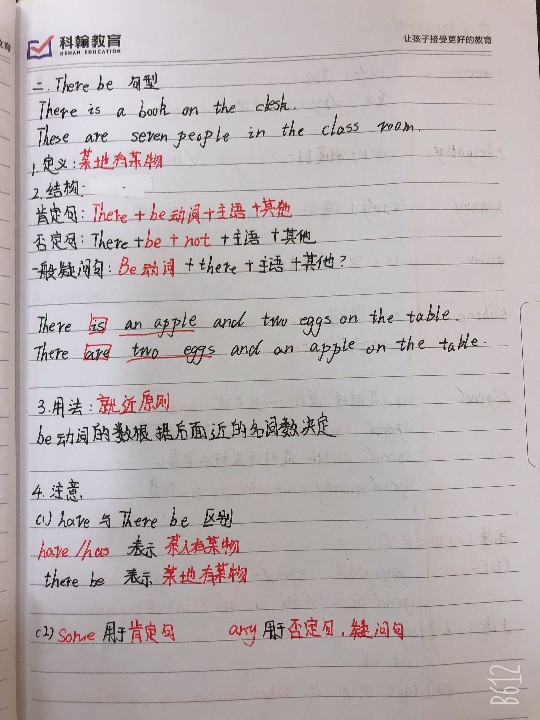 科翰教育
KEHAN EDUCATION
让孩子接受更好的教育
二. There be 句型
There is a book on the desk.
These are seven people in the class room.
1. 定义: 某地有某物
2. 结构:
肯定句: There + be 动词 + 主语 + 其他
否定句: There + be + not + 主语 + 其他
一般疑问句: Be 动词 + there + 主语 + 其他?
There is an apple and two eggs on the table.
There are two eggs and an apple on the table.
3. 用法: 就近原则
be 动词的数根据后面近的名词数决定
4. 注意
(1) have 与 There be 区别
have / has 表示 某人有某物
there be 表示 某地有某物
(2) Some 用于肯定句 any 用于否定句, 疑问句
B612